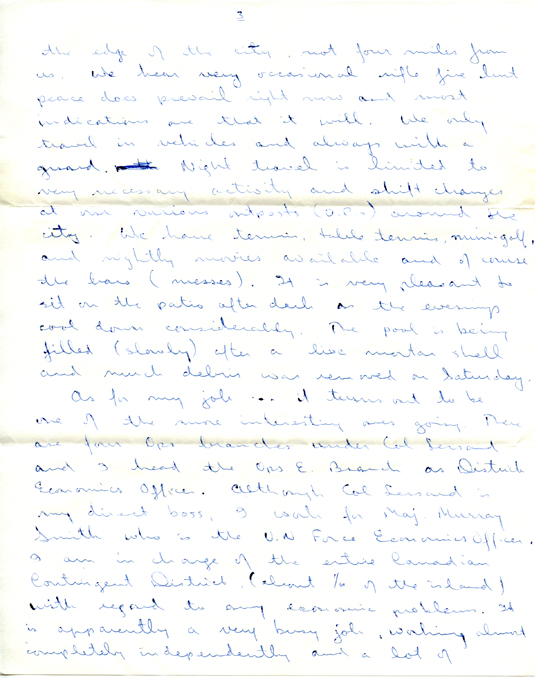 3
the edge of the city, not four miles from
us. We hear very occasional rifle fire but
peace does prevail right now and most
indications are that it will. We only
travel in vehicles and always with a
guard. Night travel is limited to
very necessary activity and shift changes
at our various outposts (O.P.s) around the
city. We have tennis, table tennis, mini-golf,
and nightly movies available and of course
the bars (messes). It is very pleasant to
sit on the patio after dark as the evenings
cool down considerably. The pool is being
filled (slowly) after a live mortar shell
and much debris was removed on Saturday.
As for my job ... it turns out to be
one of the more interesting ones going. There
are four Ops branches under Col Lessard
and I head the Ops E. Branch as District
Economics Officer. Although Col Lessard is
my direct boss, I work for Maj. Murray
Smith who is the U.N Force Economics Officer.
I am in charge of the entire Canadian
Contingent District, (about of the island)
with regard to any economic problems. It
is apparently a very busy job, working almost
completely independently and a lot of